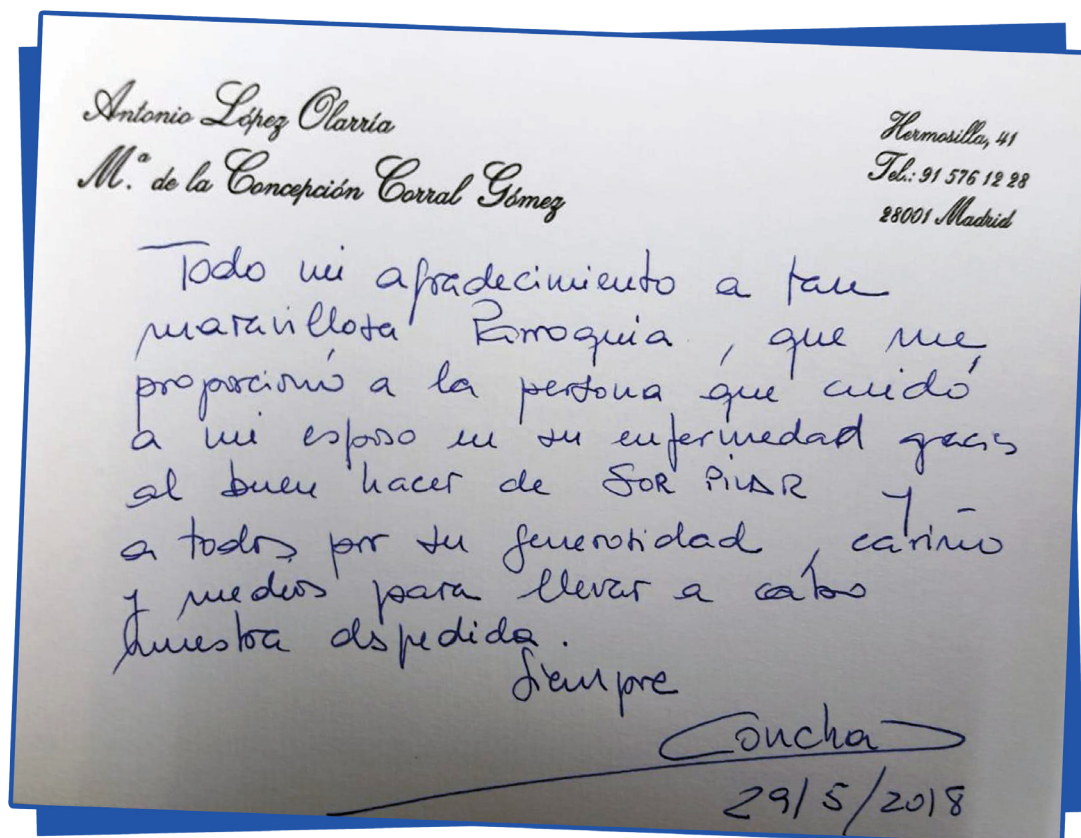 Antonio López Olarría
M.ª de la Concepción Corral Gómez
Hermosilla, 41
Tel.: 91 576 12 28
28001 Madrid
Todo mi agradecimiento a tan
maravillosa Parroquia, que me
proporcionó a la persona que cuidó
a mi esposo en su enfermedad gracias
al buen hacer de SOR PILAR y
a todos por su generosidad, cariño
y medios para llevar a cabo
nuestra despedida.
Siempre
Concha
29/5/2018